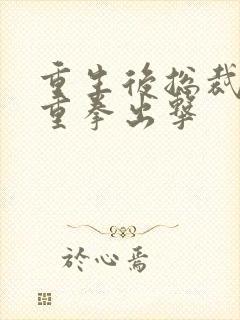 重生後總裁
重拳出擊
於心焉